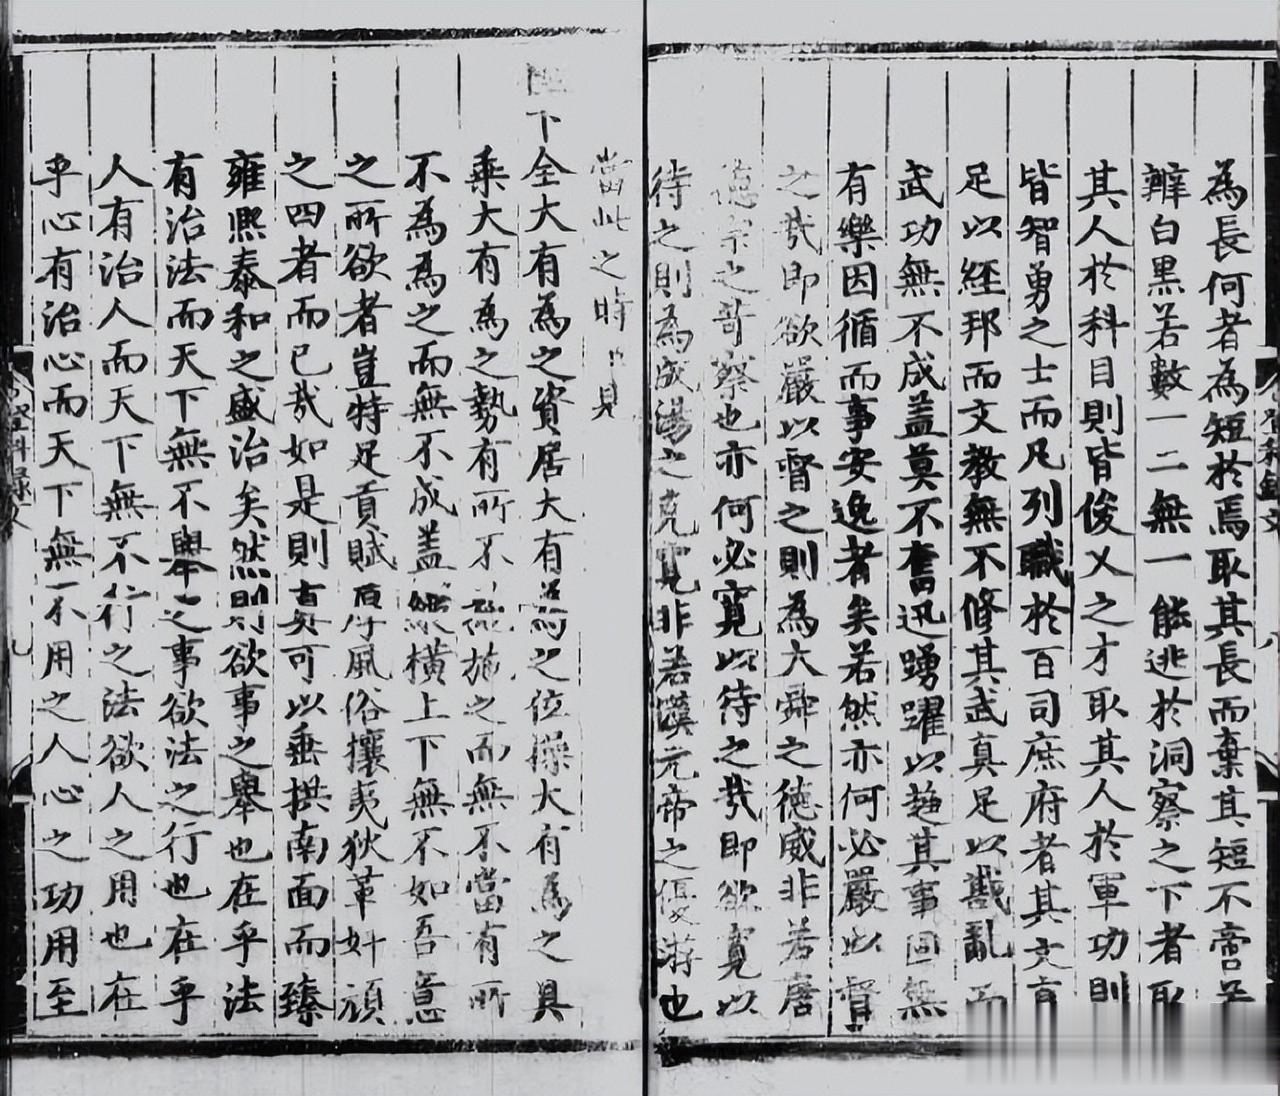 為長何者為短於焉取其長而棄其短不啻若
辨白黑若數一二無一能逃於洞察之下者取
其人於科目則皆俊乂之才取其人於軍功則
皆智勇之士而凡列職於百司庶府者其文真
足以經邦而文教無不修其武真足以戡亂而
武功無不成蓋莫不奮迅踴躍以趨其事囬無
有樂因循而事安逸者矣若然亦何必嚴以督
之㢤即欲嚴以督之則為大舜之德威非若唐
德宗之苛察也亦何必寬以待之㢤即欲寬以
待之則為成湯之克寬非若漢元帝之優游也
當此之時
陛下全大有為之資居大有為之位操大有為之具
乘大有為之勢有所不施施之而無不當有所
不為為之而無不成蓋縱橫上下無不如吾意
之所欲者豈特足貢賦厚風俗攘夷狄革奸頑
之四者而已㢤如是則真可以垂拱南面而臻
雍熙泰和之盛治矣然則欲事之舉也在乎法
有治法而天下無不舉之事欲法之行也在乎
人有治人而天下無不行之法欲人之用也在
乎心有治心而天下無不用之人心之功用至
登科錄文
八
登科錄文
九